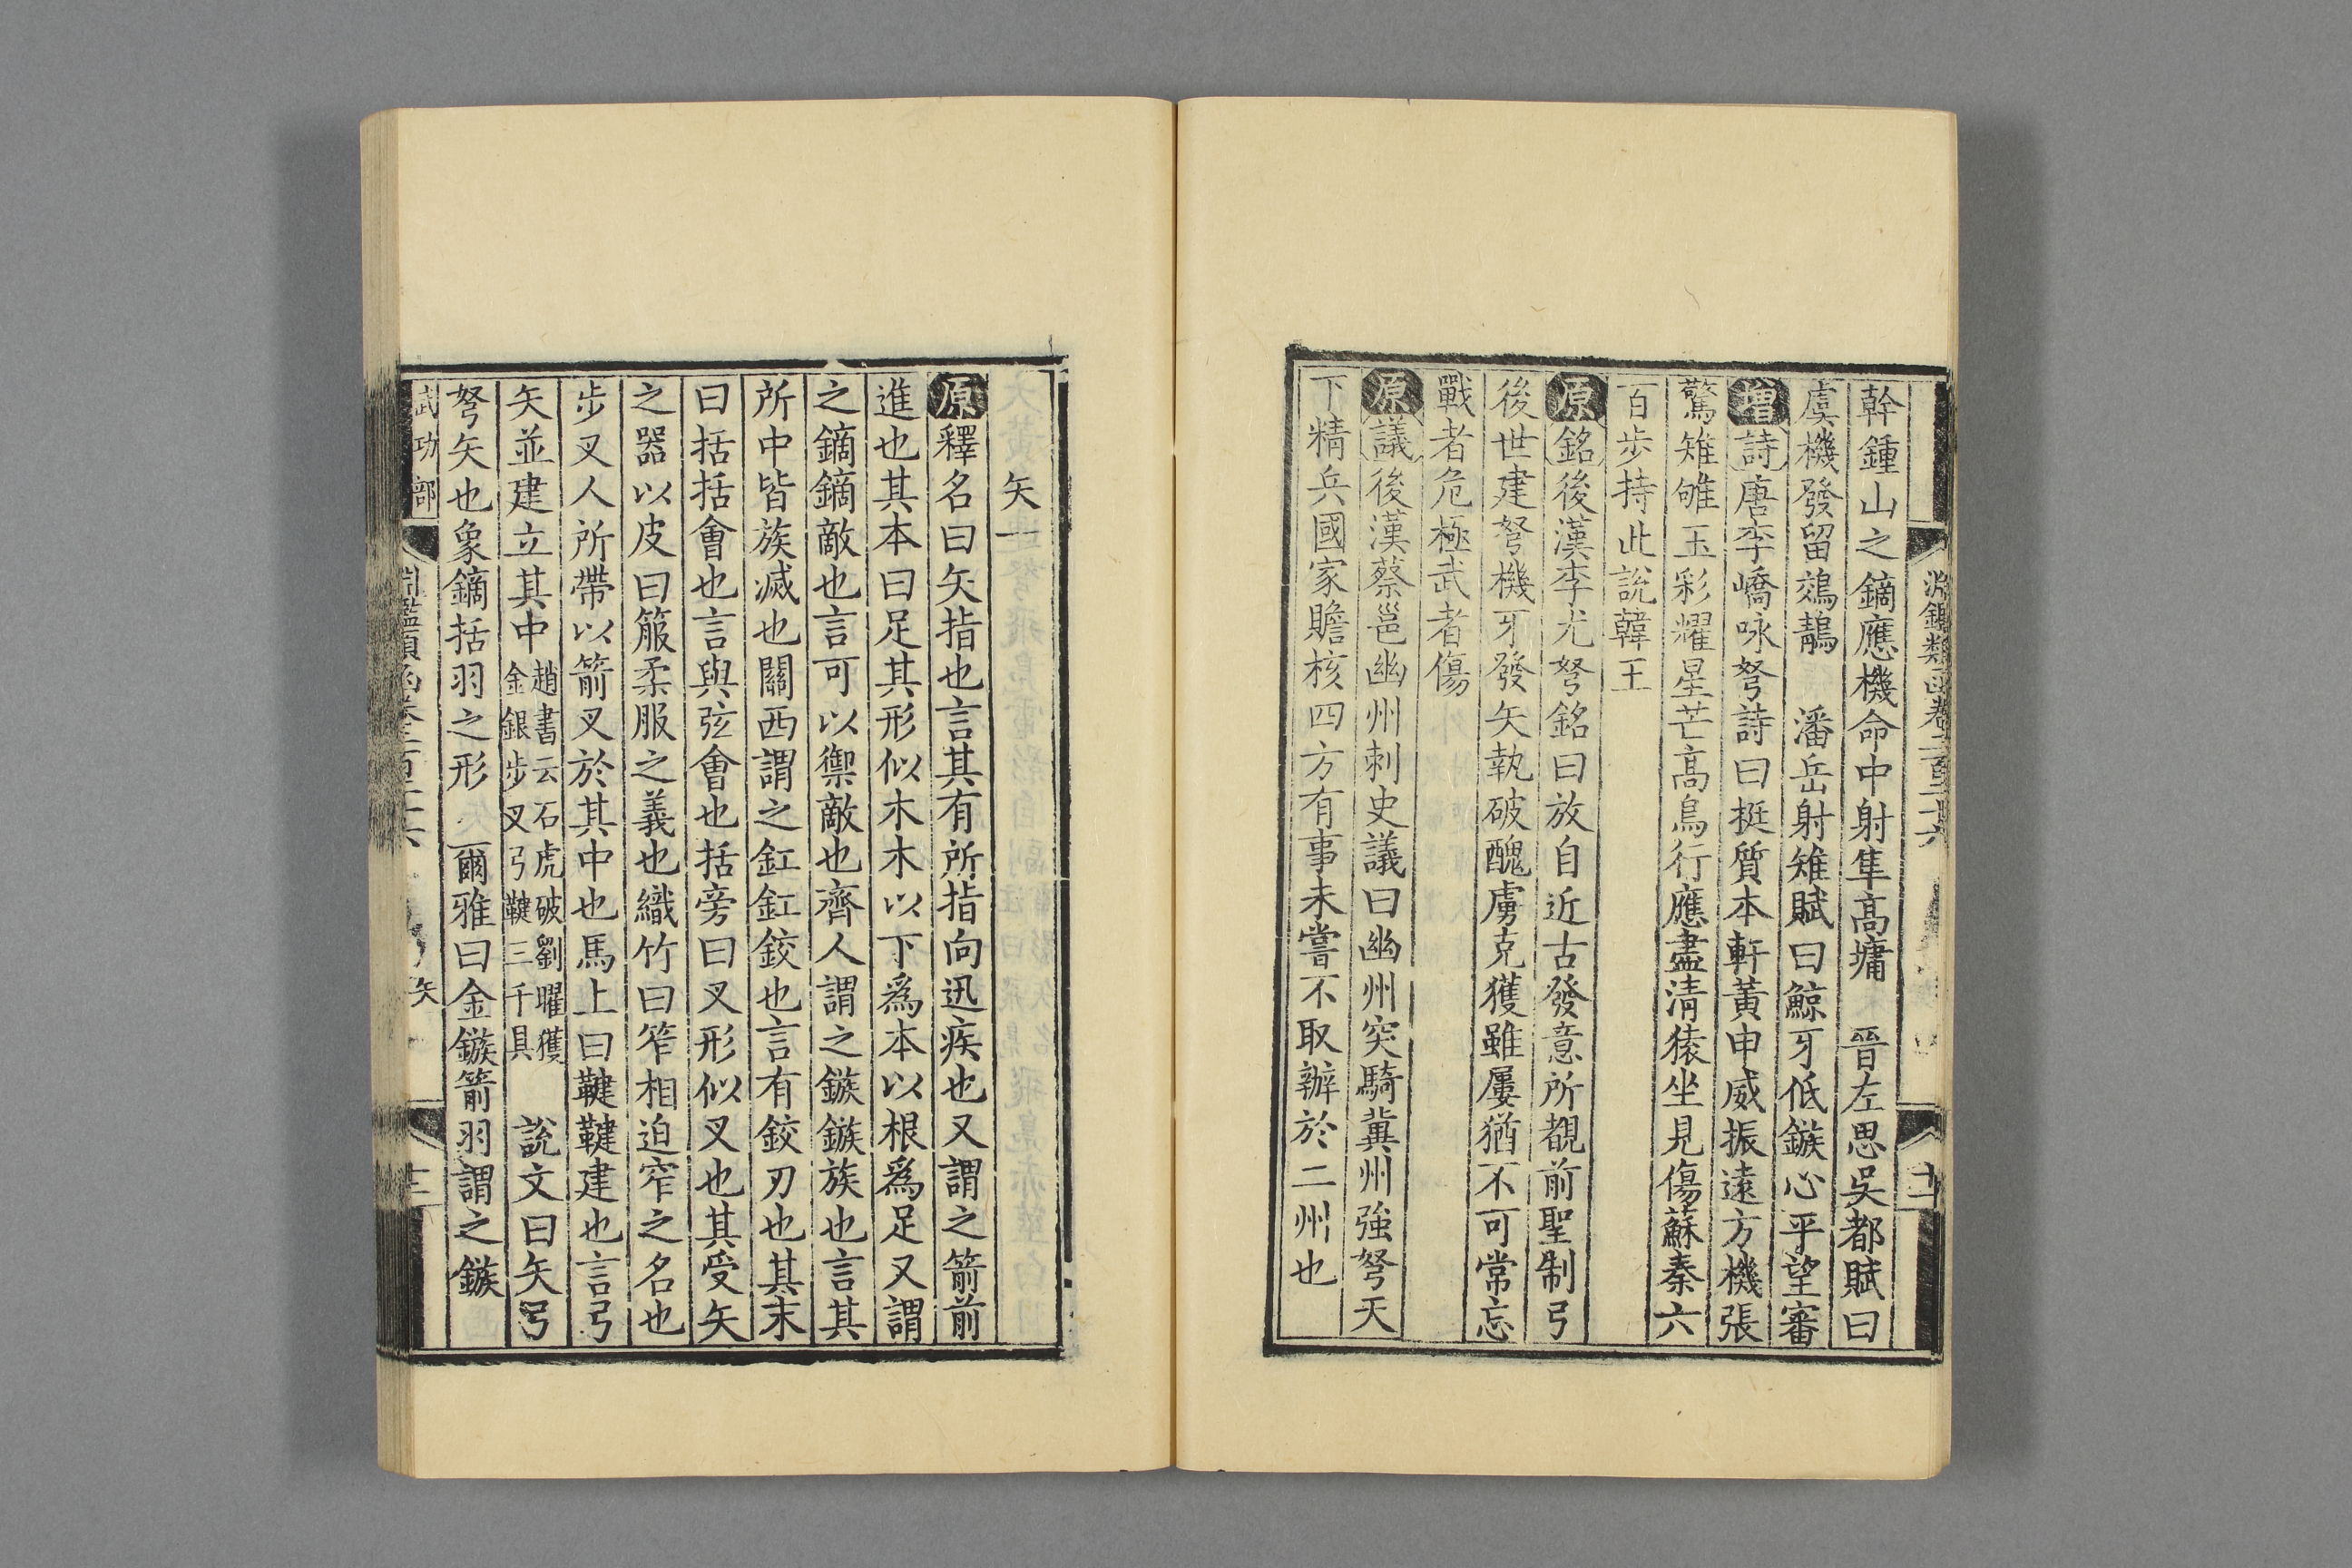 淵鑑類函卷二百二十六
十二
幹鍾山之鏑應機命中射隼高墉　晉左思吳都賦曰
虞機發留鵁鶄　潘岳射雉賦曰鯨牙低鏃心平望審
增詩唐李嶠咏弩詩曰挺質本軒黃申威振遠方機張
驚雉雊玉彩耀星芒高鳥行應盡清猿坐見傷蘇秦六
百步持此說韓王
原銘後漢李尤弩銘曰放自近古發意所覩前聖制弓
後世建弩機牙發矢執破醜虜克獲雖屢猶不可常忘
戰者危極武者傷
原議後漢蔡邕幽州刺史議曰幽州突騎冀州強弩天
下精兵國家贍核四方有事未嘗不取辦於二州也
矢一
原釋名曰矢指也言其有所指向迅疾也又謂之箭前
進也其本曰足其形似木木以下為本以根為足又謂
之鏑鏑敵也言可以禦敵也齊人謂之鏃鏃族也言其
所中皆族滅也關西謂之釭釭鉸也言有鉸刃也其末
曰括括會也言與弦會也括旁曰叉形似叉也其受矢
之器以皮曰箙柔服之義也織竹曰笮相迫窄之名也
步叉人所帶以箭叉於其中也馬上曰鞬鞬建也言弓
矢並建立其中趙書云石虎破劉曜獲金銀步叉弓鞬三千具　說文曰矢弓
弩矢也象鏑括羽之形　爾雅曰金鏃箭羽謂之鏃
武功部
淵鑑類函卷二百二十六
矢一
十二